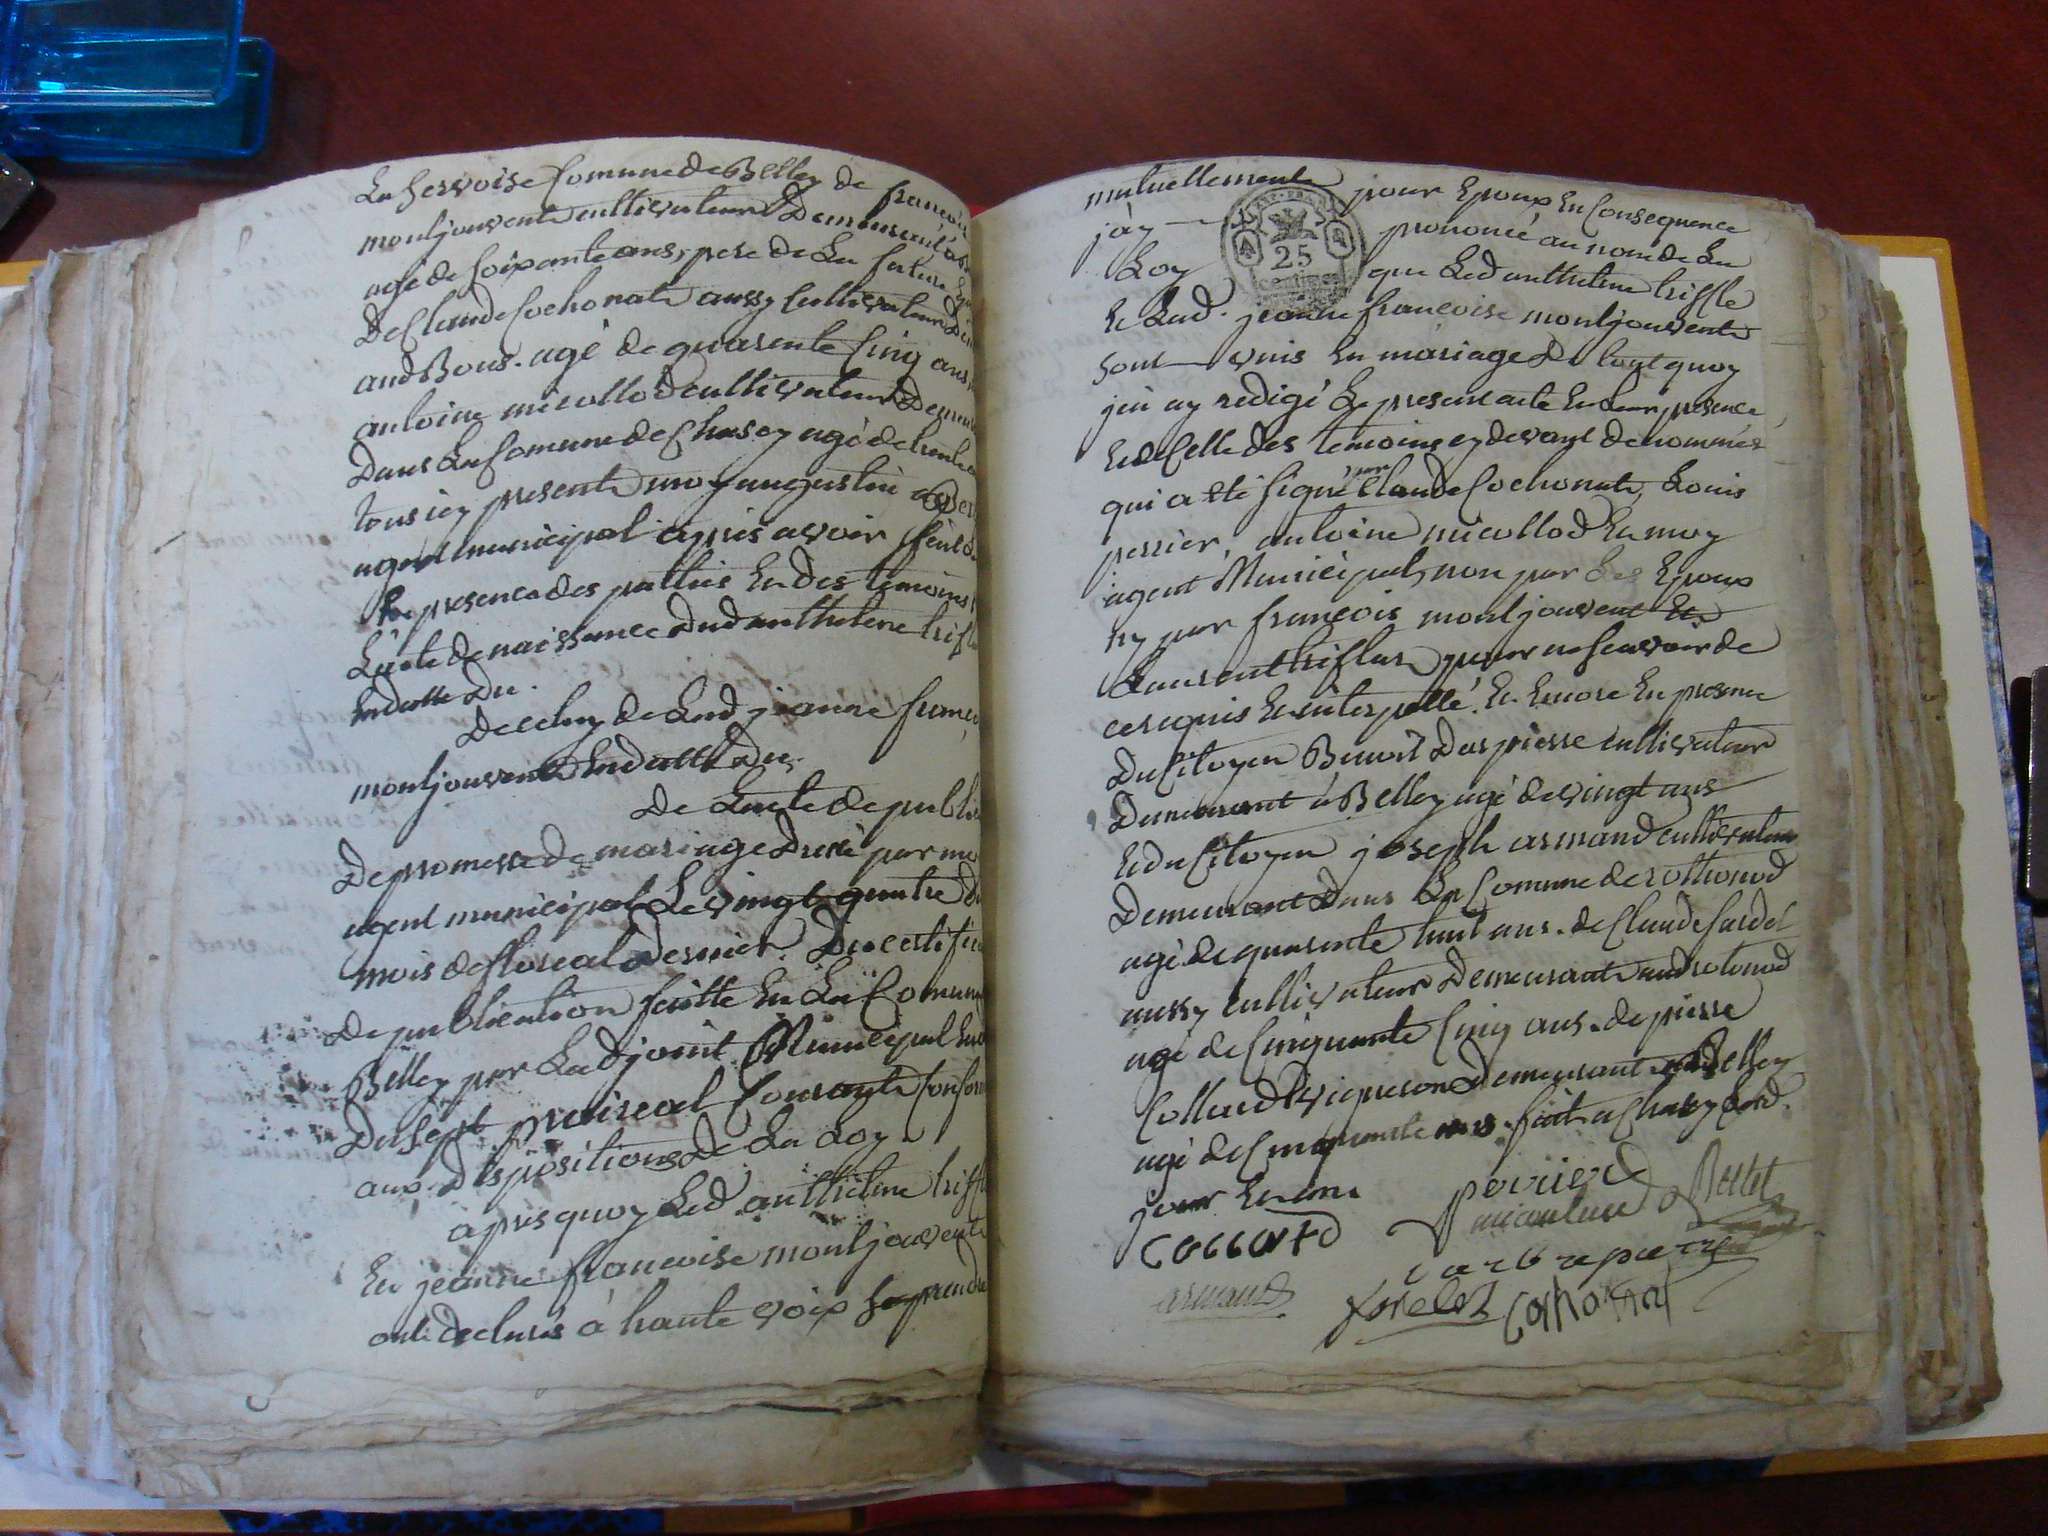 La Servoise Comune de Belley de francois
montjouvent cultivateur Demeurant
agé de soixante ans, pere de La future
De Claude Cochonat aussy cultivateur
aud Bons. agé de quarente cinq ans
antoine micollod cultivateur Demeurant
Dans La Comune de Chasey agé de trente
tous icy present moy augustin
agent municipal apris avoir fait
En presence des parties Et des temoins
Lacte de naissance Dud anthelme triffle
En datte Du.
De celuy de Lad jeanne francoise
montjouvent En datte Du.
De Lacte de publication
De promesse de mariage Dressé par moy
agent municipal Le vingt quatre du
mois de floreal Dernier. Du certificat
De publication faitte En La Comune
Belley par Ladjoint Municipal
Du sept praireal Courant Conforme
aux Dispositions De La Loy.
apris quoy Led anthelme triffle
Et jeanne francoise montjouvent
ont declaré à haute voix se prendre
mutuellement pour Epoux En Consequence
jày prononcé au nom de La
Loy que Led anthelme triffle
Et Lad. jeanne francoise montjouvent
sont unis En mariage De tout quoy
jen ay redigé Le present acte En leur presence
Et de Celle des temoins cy devant denommés
qui a eté signé par Claude Cochonat, Louis
perrier, antoine micollod Et moy
agent Municipal, non par Les Epoux
ny par francois montjouvent Et
Laurent triffle pour ne scavoir de
ce requis Et interpellé. Et Encore En presence
Du Citoyen Benoit Darpierre cultivateur
Demeurant à Belley agé de vingt ans
Et du Citoyen joseph armand cultivateur
Demeurant Dans La Comune de rottonod
agé de quarente huit ans. de Claude Cardet
aussy cultivateur Demeurant aud rotonod
agé de Cinquante Cinq ans. de pierre
Colland vigneron Demeurant Belley
agé de Cinquante ans. fait a Chasey Led.
jour Et an.
25
centimes
perrier
armand